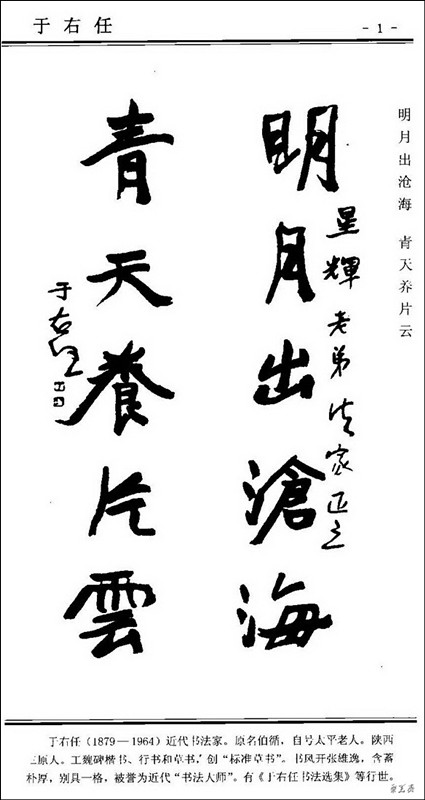 于右任
-1-
明月出沧海 青天养片云
明月出滄海
星輝老弟法家正之
青天養片雲
于右任
于右任(1879—1964)近代书法家。原名伯循,自号太平老人。陕西
三原人。工魏碑楷书、行书和草书,创“标准草书”。书风开张雄逸,含蓄
朴厚,别具一格,被誉为近代“书法大师”。有《于右任书法选集》等行世。